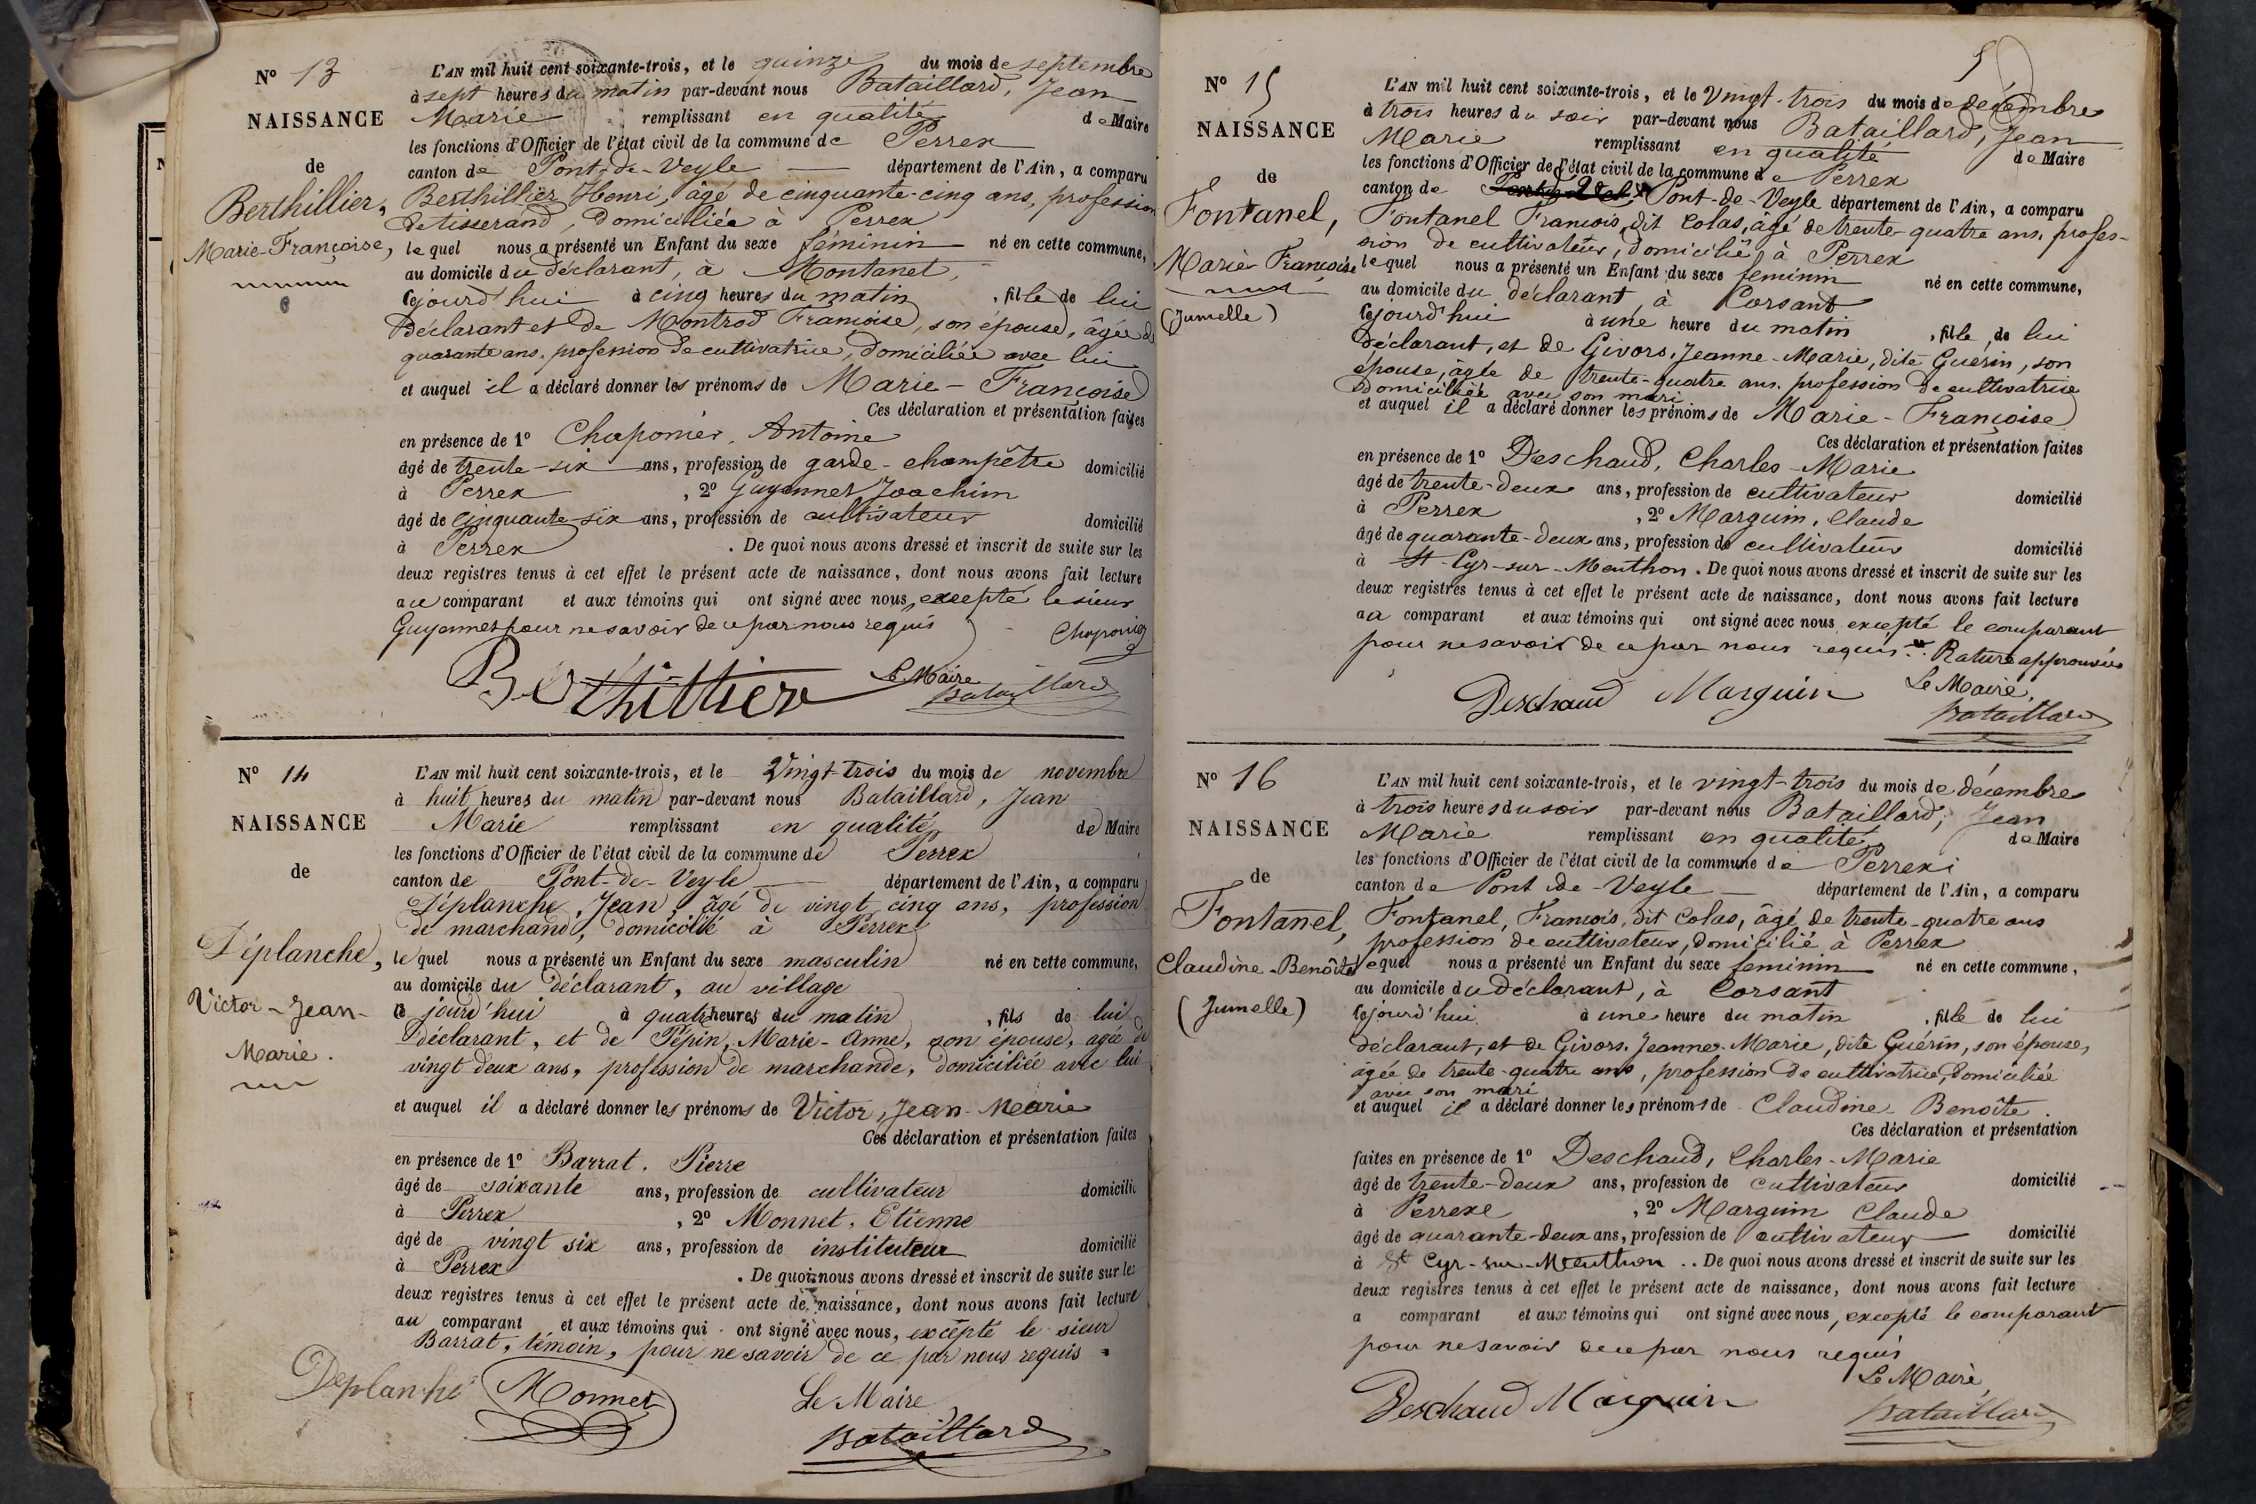 N° 13
NAISSANCE
de
Berthillier,
Marie-Françoise,
L'AN mil huit cent soixante-trois, et le quinze du mois de septembre
à sept heures du matin par-devant nous Bataillard, Jean
Marie remplissant en qualité de Maire
les fonctions d'Officier de l'état civil de la commune de Perrex
canton de Pont-de-Veyle département de l'Ain, a comparu
Berthillier, Henri, âgé de cinquante-cinq ans, profession
de tisserand, domiciliée à Perrex
lequel nous a présenté un Enfant du sexe féminin né en cette commune,
au domicile du déclarant, à Montanet,
cejourd'hui à cinq heures du matin, fille de lui
déclarant et de Montrod Françoise, son épouse, âgée de
quarante ans, profession de cultivatrice, domiciliée avec lui
et auquel il a déclaré donner les prénoms de Marie-Françoise
Ces déclaration et présentation faites
en présence de 1° Chaponier, Antoine
âgé de trente-six ans, profession de garde-champêtre domicilié
à Perrex, 2° Guyennet Joachim
âgé de cinquante-six ans, profession de cultivateur domicilié
à Perrex. De quoi nous avons dressé et inscrit de suite sur les
deux registres tenus à cet effet le présent acte de naissance, dont nous avons fait lecture
au comparant et aux témoins qui ont signé avec nous, excepté le sieur
Guyennet pour ne savoir de ce par nous requis Chaponier
Berthillier Le Maire
Bataillard
N° 14
NAISSANCE
de
Déplanche,
Victor-Jean-
Marie.
L'AN mil huit cent soixante-trois, et le Vingt-trois du mois de novembre
à huit heures du matin par-devant nous Bataillard, Jean
Marie remplissant en qualité de Maire
les fonctions d'Officier de l'état civil de la commune de Perrex
canton de Pont-de-Veyle département de l'Ain, a comparu
Déplanche, Jean, âgé de vingt cinq ans, profession
de marchand, domicilié à Perrex
lequel nous a présenté un Enfant du sexe masculin né en cette commune,
au domicile du déclarant, au village
ce jourd'hui à quatre heures du matin, fils de lui
déclarant, et de Pépin, Marie-Anne, son épouse, agée de
vingt deux ans, profession de marchande, domiciliée avec lui
et auquel il a déclaré donner les prénoms de Victor, Jean-Marie
Ces déclaration et présentation faites
en présence de 1° Barrat, Pierre
âgé de soixante ans, profession de cultivateur domicilié
à Perrex, 2° Monnet, Etienne
âgé de vingt six ans, profession de instituteur domicilié
à Perrex. De quoi nous avons dressé et inscrit de suite sur les
deux registres tenus à cet effet le présent acte de naissance, dont nous avons fait lecture
au comparant et aux témoins qui ont signé avec nous, excepté le sieur
Barrat, témoin, pour ne savoir de ce par nous requis
Deplanche Monnet Le Maire
Bataillard
5
N° 15
NAISSANCE
de
Fontanel,
Marie Françoise
(Jumelle)
L'AN mil huit cent soixante-trois, et le Vingt-trois du mois de décembre
à trois heures du soir par-devant nous Bataillard, Jean
Marie remplissant en qualité de Maire
les fonctions d'Officier de l'état civil de la commune de Perrex
canton de Pont-de-Veyle département de l'Ain, a comparu
Fontanel François, dit Colas, âgé de trente-quatre ans, profes-
sion de cultivateur, domicilié à Perrex
lequel nous a présenté un Enfant du sexe feminin né en cette commune,
au domicile du déclarant, à Corsant
cejourd'hui à une heure du matin, fille de lui
déclarant, et de Givors, Jeanne-Marie, dite Guérin, son
épouse, âgée de trente-quatre ans, profession de cultivatrice
domiciliée avec son mari
et auquel il a déclaré donner les prénoms de Marie-Françoise
Ces déclaration et présentation faites
en présence de 1° Deschaud, Charles-Marie
âgé de trente-deux ans, profession de cultivateur domicilié
à Perrex, 2° Marguin, Claude
âgé de quarante-deux ans, profession de cultivateur domicilié
à St-Cyr-sur-Menthon. De quoi nous avons dressé et inscrit de suite sur les
deux registres tenus à cet effet le présent acte de naissance, dont nous avons fait lecture
au comparant et aux témoins qui ont signé avec nous excepté le comparant
pour ne savoir de ce par nous requis. Rature approuvée
Deschaud Marguin Le Maire,
Bataillard
N° 16
NAISSANCE
de
Fontanel,
Claudine-Benoîte
(Jumelle)
L'AN mil huit cent soixante-trois, et le vingt-trois du mois de décembre
à trois heures du soir par-devant nous Bataillard, Jean
Marie remplissant en qualité de Maire
les fonctions d'Officier de l'état civil de la commune de Perrex
canton de Pont-de-Veyle département de l'Ain, a comparu
Fontanel, François, dit Colas, âgé de trente-quatre ans
profession de cultivateur, domicilié à Perrex
lequel nous a présenté un Enfant du sexe feminin né en cette commune,
au domicile du déclarant, à Corsant
cejourd'hui à une heure du matin, fille de lui
déclarant, et de Givors, Jeanne-Marie, dite Guérin, son épouse,
agée de trente-quatre ans, profession de cultivatrice, domiciliée
avec son mari
et auquel il a déclaré donner les prénoms de Claudine-Benoîte.
Ces déclaration et présentation
faites en présence de 1° Deschaud, Charles-Marie
âgé de trente-deux ans, profession de cultivateur domicilié
à Perrex, 2° Marguin Claude
âgé de quarante-deux ans, profession de cultivateur domicilié
à St Cyr-sur-Menthon.. De quoi nous avons dressé et inscrit de suite sur les
deux registres tenus à cet effet le présent acte de naissance, dont nous avons fait lecture
a comparant et aux témoins qui ont signé avec nous, excepté le comparant
pour ne savoir de ce par nous requis
Le Maire,
Deschaud Marguin Bataillard